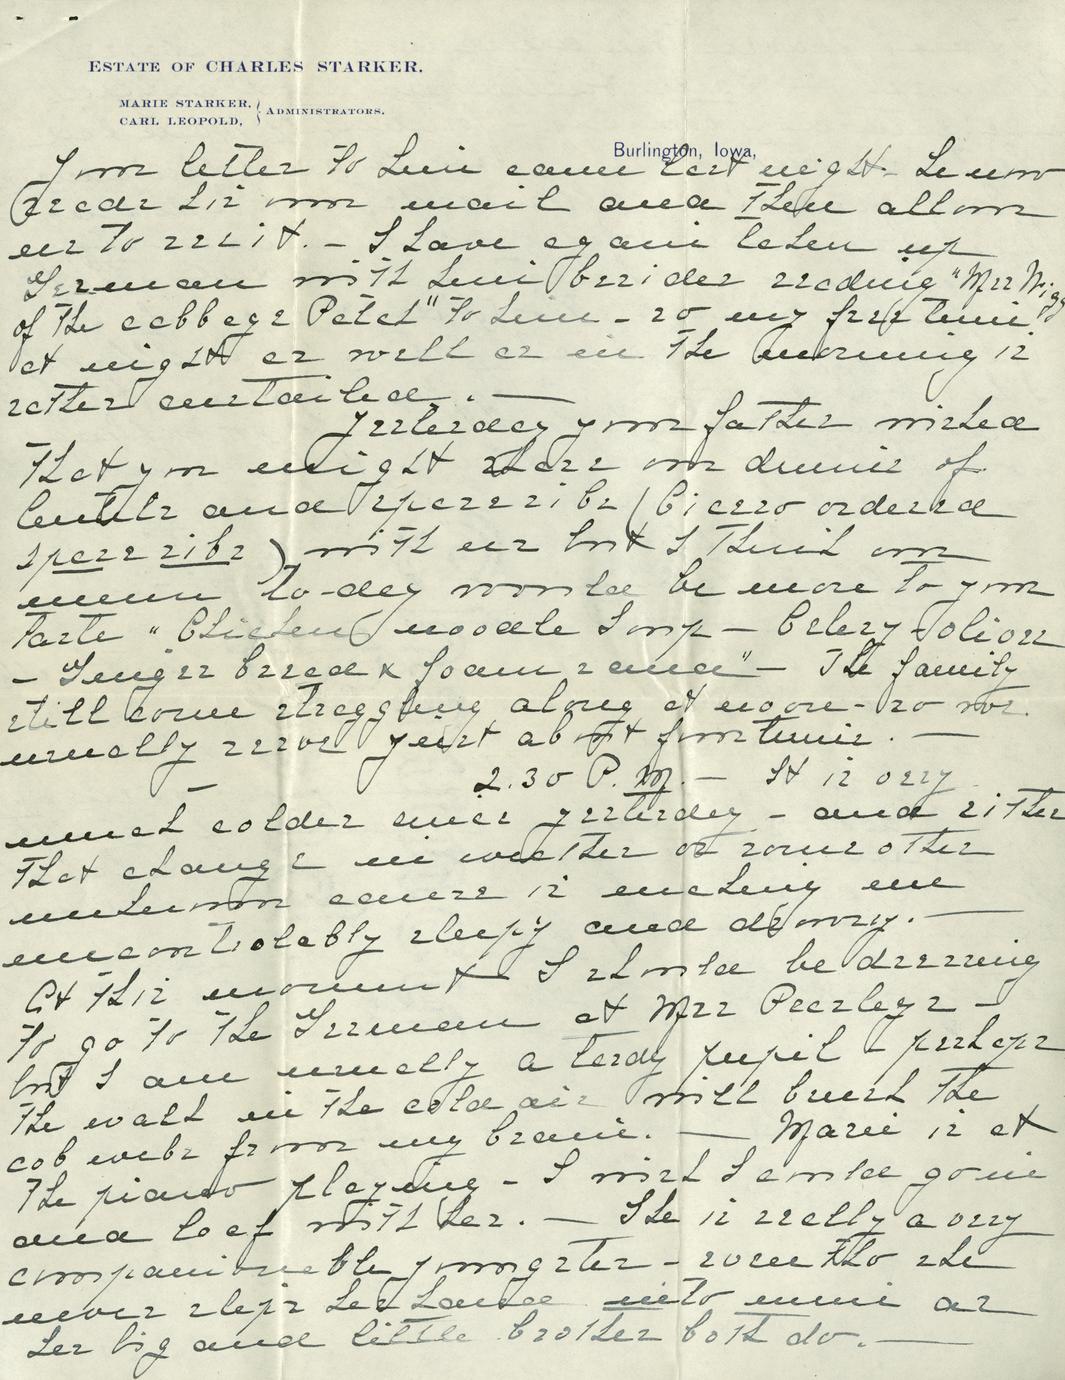 ESTATE OF CHARLES STARKER.
MARIE STARKER, } ADMINISTRATORS.
CARL LEOPOLD,
Burlington, Iowa,
Your letter to him came last night - he now
reads his own mail and then allows
us to see it. - I have again taken up
German with him besides reading "Mrs Wiggs
of the cabbage Patch" to him - so my free time
at night as well as in the morning is
rather curtailed. -
Yesterday your father wished
that you might share our dinner of
lentils and spare ribs (Cicero ordered
spare ribs) with us but I think our
menu to-day would be more to your
taste "Chicken noodle Soup - Celery - olives
- Ginger bread & foam sauce" - The family
still come straggling along at noon - so we
usually serve just about four times. -
- 2.30 P.M. - It is very
much colder since yesterday - and either
that change in weather or some other
unknown cause is making me
uncontrolably sleepy and drowsy. -
At this moment I should be dressing
to go to the German at Mrs Peasleys -
but I am usually a tardy pupil - perhaps
the walk in the cold air will brush the
cob webs from my brain. - Marie is at
the piano playing - I wish I could go in
and loaf with her. - She is really a very
companionable youngster - even tho she
never slips her hand into mine as
her big and little brother both do. -